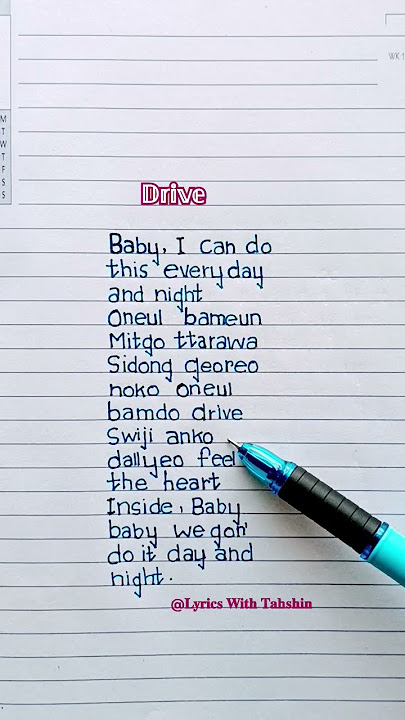 WK 1
M
T
W
T
F
S
S
Drive
Baby, I can do
this everyday
and night
Oneul bameun
Mitgo ttarawa
Sidong georeo
noko oneul
bamdo drive
Swiji anko
dallyeo feel
the heart
Inside, Baby
baby we gon'
do it day and
night.
@Lyrics With Tahshin